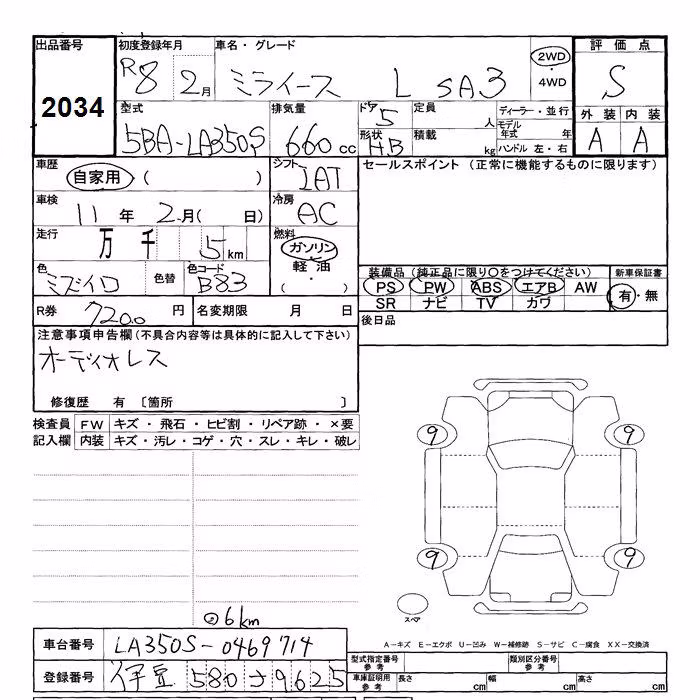 出品番号 初度登録年月 車名・グレード 2WD 評価点
2034 R8 2月 ミライース L SA3 ・4WD S
型式 排気量 ドア 5 定員 人 ディーラー・並行 外装 内装
5BA-LA350S 660cc 形状 HB 積載 kg モデル年式 年 A A
ハンドル 左・右
車歴 自家用 ( ) シフト IAT セールスポイント (正常に機能するものに限ります)
車検 11年 2月( 日) 冷房 AC
走行 万 千 5km 燃料 ガソリン
軽油
( ・ )
色 ミズイロ 色替 色コード B83
装備品 (純正品に限り〇をつけてください) 新車保証書
PS PW ABS エアB AW 有・無
SR ナビ TV カワ
R券 7200 円 名変期限 月 日 後日品
注意事項申告欄 (不具合内容等は具体的に記入して下さい)
オーディオレス
修復歴 有 〔箇所 〕
検査員 FW キズ・飛石・ヒビ割・リペア跡・×要
記入欄 内装 キズ・汚レ・コゲ・穴・スレ・キレ・破レ
9 9
9 9
スペア
6km
A-キズ E-エクボ U-凹み W-補修跡 S-サビ C-腐食 XX-交換済
車台番号 LA350S-0469714
型式指定番号 参考 類別区分番号 参考
登録番号 伊豆 580 9625
車庫証明用 参考 長さ cm 幅 cm 高さ cm